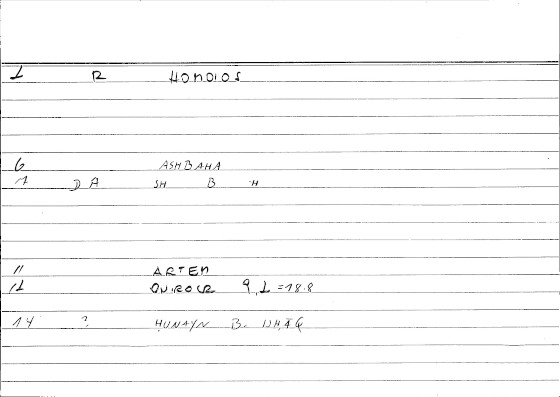 1 R HOMOIOS
6 ASHBAHA
7 D A SH B H
11 ARTEM
12 ONIROCR 9,1 =18.8
14 ? ḤUNAYN B. ISḤĀQ